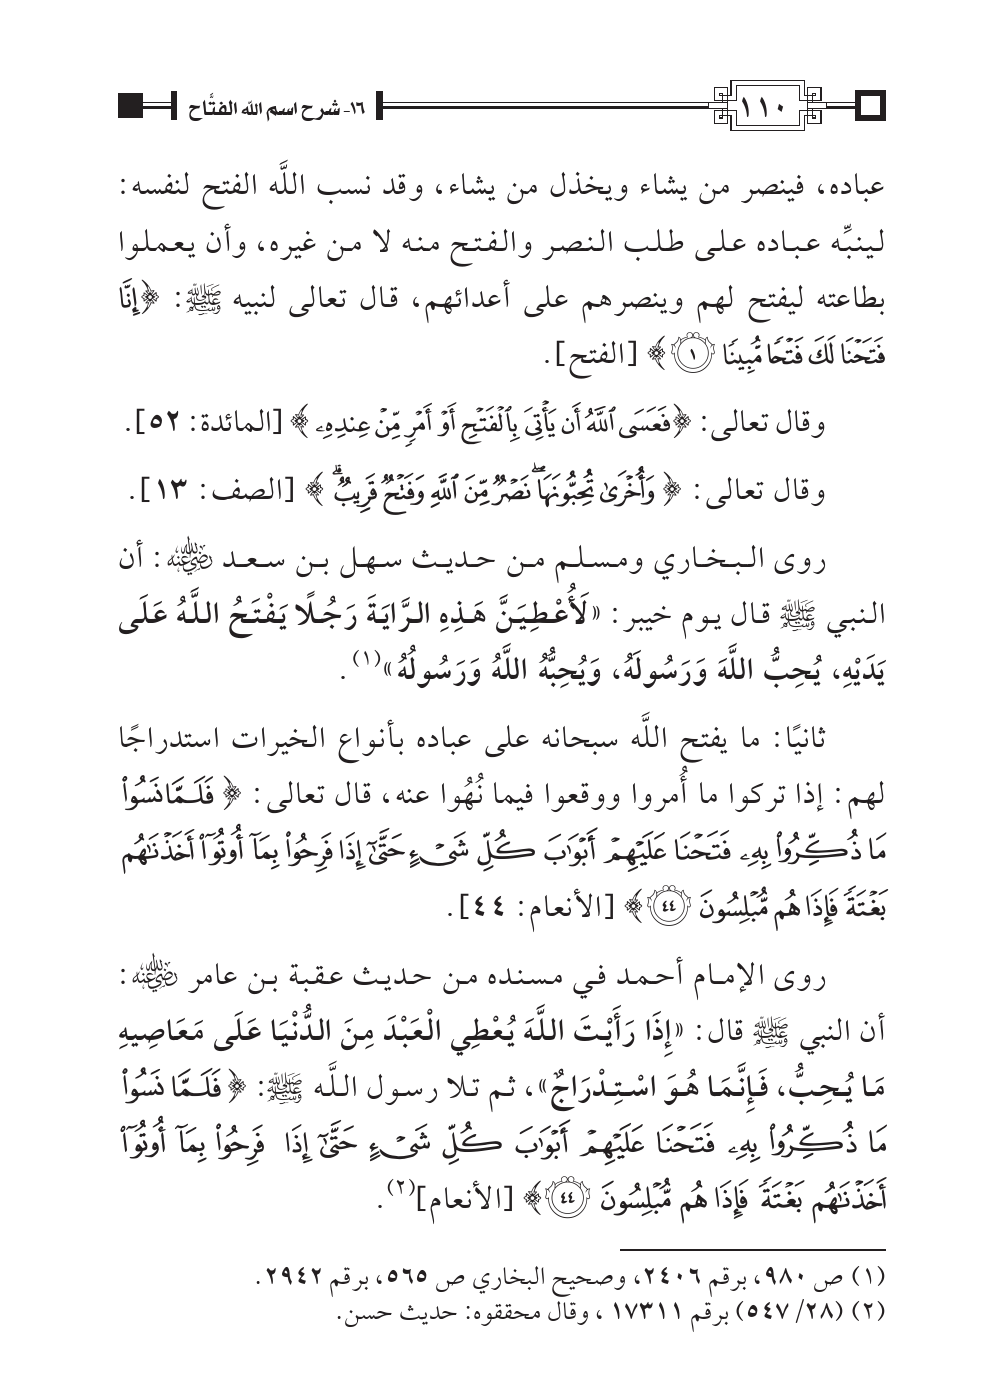 ١١٠
١٦- شرح اسم الله الفتَّاح
عباده، فينصر من يشاء ويخذل من يشاء، وقد نسب اللَّه الفتح لنفسه:
لينبِّه عباده على طلب النصر والفتح منه لا من غيره، وأن يعملوا
بطاعته ليفتح لهم وينصرهم على أعدائهم، قال تعالى لنبيه ﷺ: ﴿إِنَّا
فَتَحۡنَا لَكَ فَتۡحٗا مُّبِينٗا ١﴾ [الفتح].
وقال تعالى: ﴿فَعَسَى ٱللَّهُ أَن يَأۡتِيَ بِٱلۡفَتۡحِ أَوۡ أَمۡرٖ مِّنۡ عِندِهِۦ﴾ [المائدة: ٥٢].
وقال تعالى: ﴿وَأُخۡرَىٰ تُحِبُّونَهَاۖ نَصۡرٞ مِّنَ ٱللَّهِ وَفَتۡحٞ قَرِيبٞۗ﴾ [الصف: ١٣].
روى البخاري ومسلم من حديث سهل بن سعد رضي الله عنه: أن
النبي ﷺ قال يوم خيبر: «لَأُعْطِيَنَّ هَذِهِ الرَّايَةَ رَجُلًا يَفْتَحُ اللَّهُ عَلَى
يَدَيْهِ، يُحِبُّ اللَّهَ وَرَسُولَهُ، وَيُحِبُّهُ اللَّهُ وَرَسُولُهُ»(١).
ثانيًا: ما يفتح اللَّه سبحانه على عباده بأنواع الخيرات استدراجًا
لهم: إذا تركوا ما أُمروا ووقعوا فيما نُهُوا عنه، قال تعالى: ﴿فَلَمَّا نَسُواْ
مَا ذُكِّرُواْ بِهِۦ فَتَحۡنَا عَلَيۡهِمۡ أَبۡوَٰبَ كُلِّ شَيۡءٍ حَتَّىٰٓ إِذَا فَرِحُواْ بِمَآ أُوتُوٓاْ أَخَذۡنَٰهُم
بَغۡتَةٗ فَإِذَا هُم مُّبۡلِسُونَ ٤٤﴾ [الأنعام: ٤٤].
روى الإمام أحمد في مسنده من حديث عقبة بن عامر رضي الله عنه:
أن النبي ﷺ قال: «إِذَا رَأَيْتَ اللَّهَ يُعْطِي الْعَبْدَ مِنَ الدُّنْيَا عَلَى مَعَاصِيهِ
مَا يُحِبُّ، فَإِنَّمَا هُوَ اسْتِدْرَاجٌ»، ثم تلا رسول اللَّه ﷺ: ﴿فَلَمَّا نَسُواْ
مَا ذُكِّرُواْ بِهِۦ فَتَحۡنَا عَلَيۡهِمۡ أَبۡوَٰبَ كُلِّ شَيۡءٍ حَتَّىٰٓ إِذَا فَرِحُواْ بِمَآ أُوتُوٓاْ
أَخَذۡنَٰهُم بَغۡتَةٗ فَإِذَا هُم مُّبۡلِسُونَ ٤٤﴾ [الأنعام](٢).
(١) ص ٩٨٠، برقم ٢٤٠٦، وصحيح البخاري ص ٥٦٥، برقم ٢٩٤٢.
(٢) (٢٨/ ٥٤٧) برقم ١٧٣١١ ، وقال محققوه: حديث حسن.